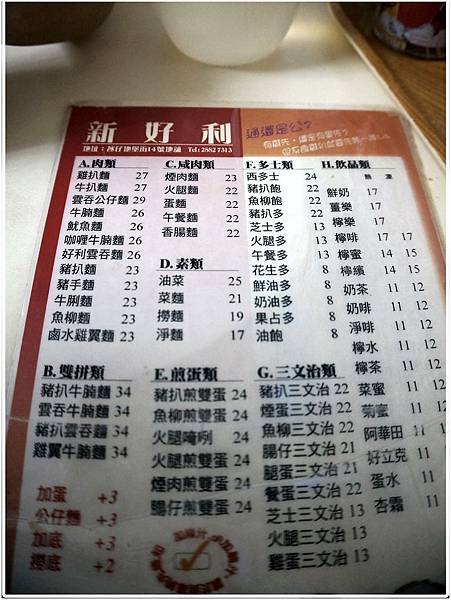 新好利
地址：氹仔地堡街14號地舖 Tel: 2882 7313
A.肉類
雞扒麵 29
牛扒麵 27
雲吞公仔麵 29
牛腩麵 26
魷魚麵 26
咖喱牛腩麵 26
好利雲吞麵 26
豬扒麵 23
豬手麵 23
牛脷麵 23
魚柳麵 23
鹵水雞翼麵 23
B.雙拼類
豬扒牛腩麵 34
雲吞牛腩麵 34
豬扒雲吞麵 34
雞翼牛腩麵 34
加蛋 +3
公仔麵 +3
加底 +3
撈底 +2
C.咸肉類
煙肉麵 23
火腿麵 22
蛋麵 22
午餐麵 22
香腸麵 22
D.素類
油菜 25
菜麵 21
撈麵 19
淨麵 17
E.煎蛋類
豬扒煎雙蛋 24
魚柳煎雙蛋 24
火腿奄列 24
火腿煎雙蛋 24
煙肉煎雙蛋 24
腸仔煎雙蛋 24
F.多士類
西多士 24
豬扒飽 22
魚柳飽 22
豬扒多 22
芝士多 13
火腿多 13
午餐多 13
花生多 8
鮮油多 8
奶油多 8
果占多 8
油飽 8
G.三文治類
豬扒三文治 22
煙蛋三文治 22
魚柳三文治 22
腸仔三文治 21
腿蛋三文治 21
餐蛋三文治 22
芝士三文治 13
火腿三文治 13
雞蛋三文治 13
H.飲品類
熱 凍
鮮奶 17
薑樂 17
檸樂 17
檸啡 17 17
檸蜜 14 15
檸檳 14 15
奶茶 11 12
奶啡 11 12
淨啡 11 12
檸水 11 12
檸茶 11 12
菜蜜 11 12
菊蜜 11 12
阿華田 11 12
好立克 11
蛋水 11
杏霜 11